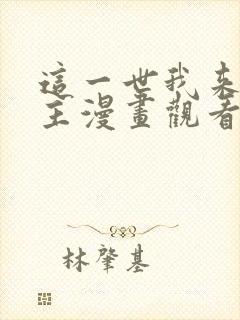 這一世我來
主漫畫觀看
林肇基